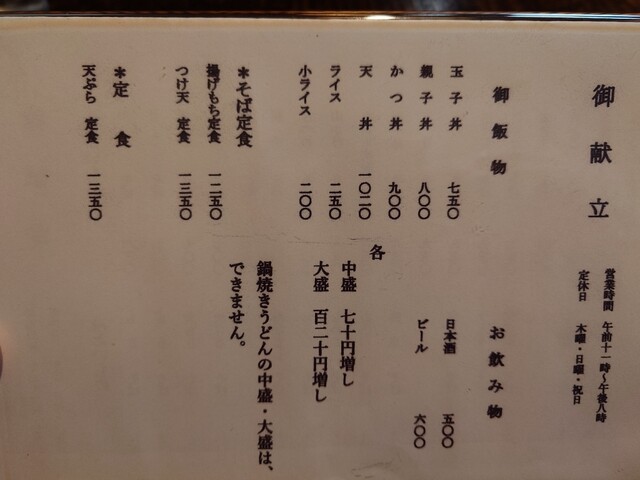 御献立
営業時間 午前十一時〜午後八時
定休日 木曜・日曜・祝日
御飯物
玉子丼 七五〇
親子丼 八〇〇
かつ丼 九〇〇
天丼 一〇二〇
ライス 二五〇
小ライス 二〇〇
＊そば定食
揚げもち定食 一二五〇
つけ天 定食 一三五〇
＊定食
天ぷら 定食 一三五〇
お飲み物
日本酒 五〇〇
ビール 六〇〇
各
中盛 七十円増し
大盛 百二十円増し
鍋焼きうどんの中盛・大盛は、
できません。